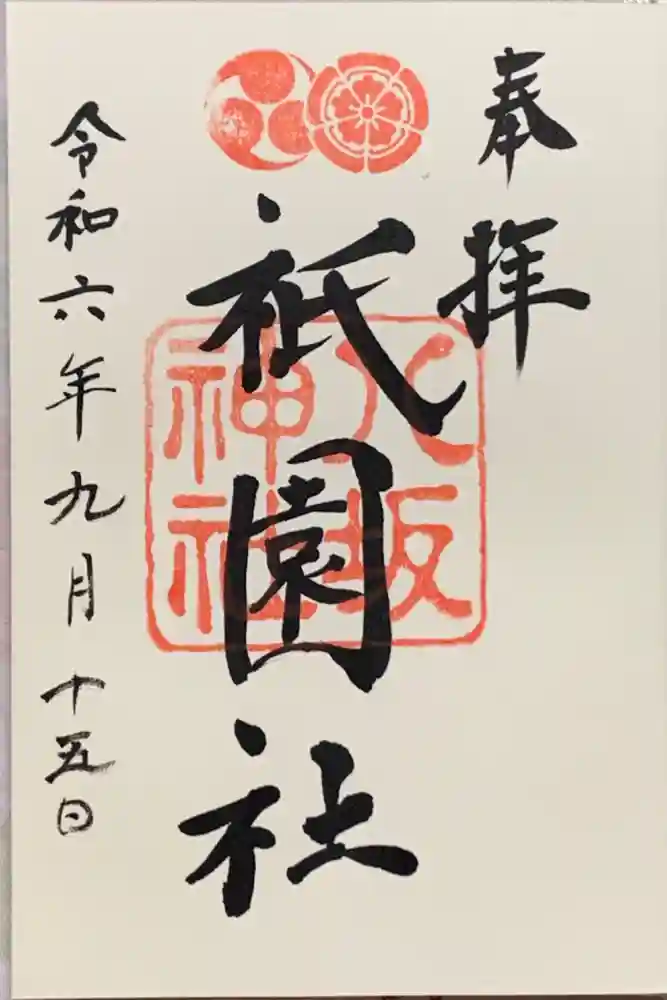 奉拝
八坂
神社
祇園社
令和六年九月十五日